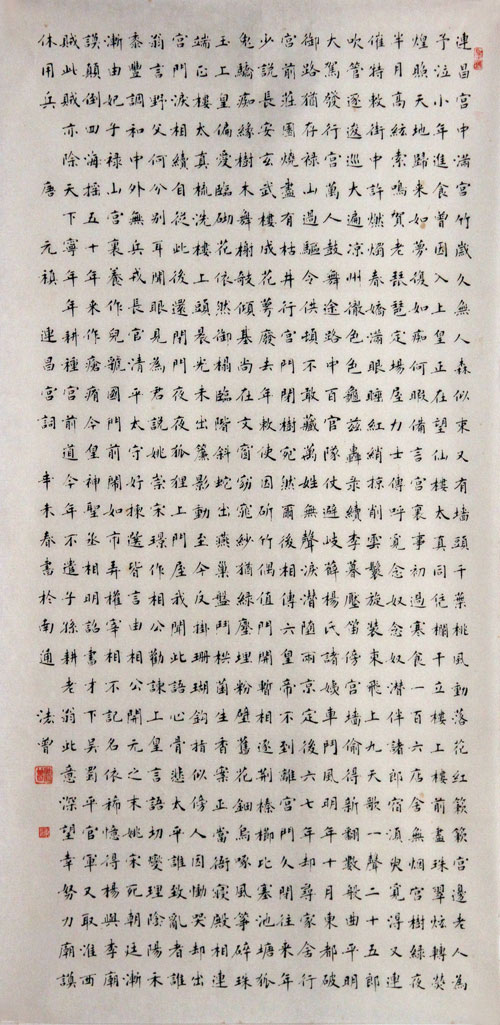 連昌宮中滿宮竹歲久無人森似束又有墻頭千葉桃風動落花紅簌簌宮邊老人為
予泣小年進食曾因入上皇正在望仙樓太真同凭欄干立樓上樓前盡珠翠炫轉熒
煌照天地歸來如夢復如痴何暇備言宮裏事初過寒食一百六店舍無烟宮樹綠夜
半月高弦索鳴賀老琵琶定場屋力士傳呼覓念奴念奴潛伴諸郎宿須臾覓得又連
催特敕街中許燃燭春嬌滿眼睡紅綃掠削雲鬟旋裝束飛上九天歌一聲二十五郎
吹管逐逡巡大遍涼州徹色色龜茲轟彔續李謩壓笛傍宮墻偷得新翻數般曲平明
大駕發行宮萬人鼓舞途路中百官隊仗避岐薛楊氏諸姨車鬥風明年十月東都破
御路猶存祿山過驅令供頓不敢藏萬姓無聲淚潛墮兩京定後六七年却尋家舍行
宮前莊園燒盡有枯井行宮門閉樹宛然爾後相傳六皇帝不到離宮門久閉往來年
少說長安玄武樓成花萼廢去年敕使因斫竹偶值門開暫相逐荊榛櫛比塞池塘狐
兔驕痴緣樹木舞榭欹傾基尚在文窗窈窕紗猶綠塵埋粉壁舊花鈿烏啄風箏碎珠
玉上皇偏愛臨砌花依然御榻臨階斜蛇出燕巢盤鬥栱菌生香案正當衙寢殿相連
端正樓太真梳洗樓上頭晨光未出簾影動至今反掛珊瑚鉤指似傍人因慟哭却出
宮門淚相續自從此後還閉門夜夜狐狸上門屋我聞此語心骨悲太平誰致亂者誰
翁言野父何分別耳聞眼見為君說姚崇宋璟作相公勸諫上皇言語切燮理陰陽禾
黍豐調和中外無兵戎長官清平太守好揀選皆言由相公開元之末姚宋死朝廷漸
漸由妃子祿山宮裏養作兒虢國門前鬧如市弄權宰相不記名依稀憶得楊與李廟
謨顛倒四海搖五十年來作瘡痏今皇神聖丞相明詔書才下吳蜀平官軍又取淮西
賊此賊亦除天下寧年年耕種宮前道今年不遣子孫耕老翁此意深望幸努力廟謨
休用兵 唐 元稹 連昌宮詞 辛未春書於南通 法曾